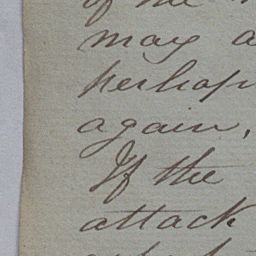 of the
may a
perhap
again.
If the
attack